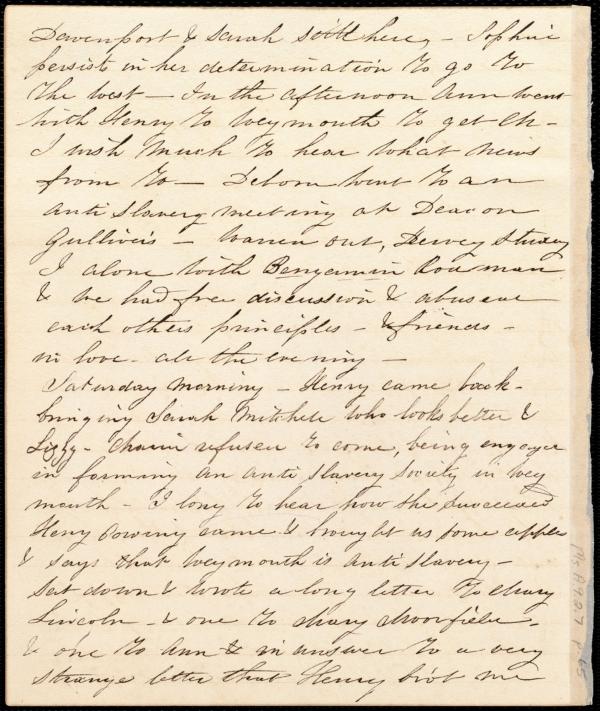 Davenport & Sarah still here, - Sophie
persists in her determination to go to
the west - In the afternoon Ann went
with Henry to Weymouth to get Ch-
I wish much to hear what news
from to - Deborn went to an
anti slavery meeting at Deacon
Gulliver's - Warren out, Hervey Study
I alone with Benjamin Bowman
& we had free discussion & abused
each others principles - & friends -
in love - all the evening -
Saturday morning - Henry came back -
bringing Sarah Mitchell who looks better &
Lizzy - refused to come, being engaged
in forming an anti slavery society in Wey
mouth - I long to hear how she succeeded
Henry came & brought us some apples
& says that Weymouth is anti slavery -
Sat down & wrote a long letter to Mary
Lincoln - & one to Mary
& one to Ann & in answer to a very
strange letter that Henry bro't me
Ms A.9.2.7 p. 65